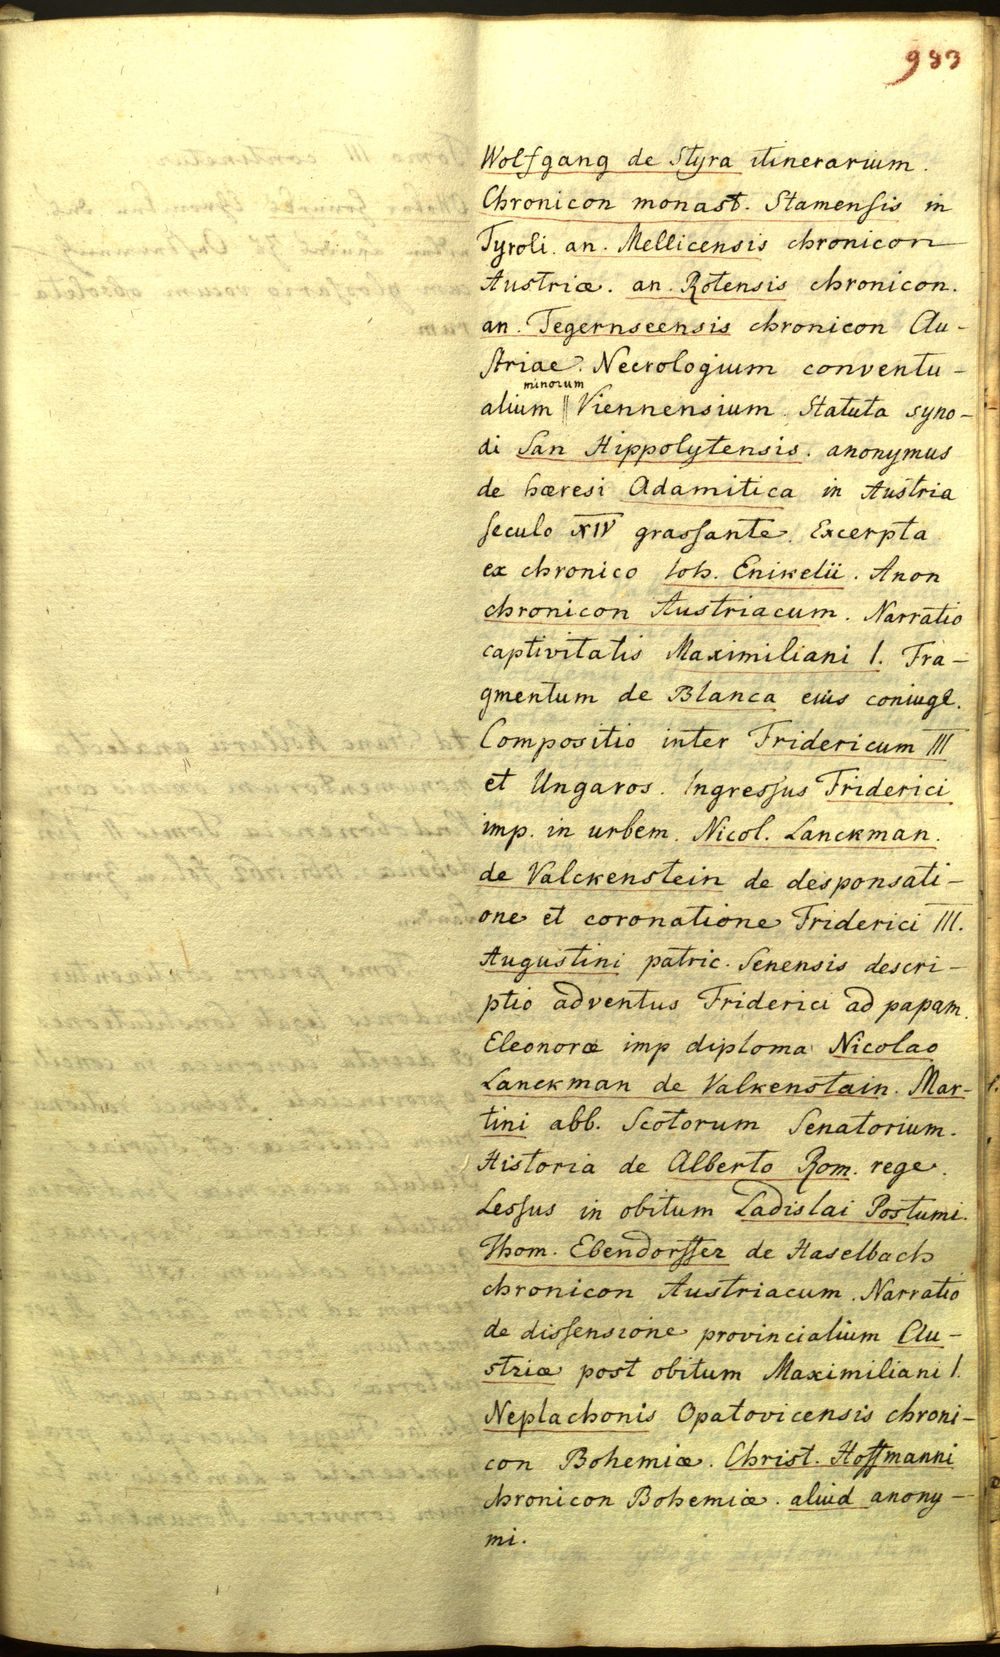 933
Wolfgang de Styra itinerarium.
Chronicon monast. Stamensis in
Tyroli. an. Mellicensis chronicon
Austriæ. an. Rotensis chronicon.
an. Tegernseensis chronicon Au-
striae. Necrologium conventu-
minorum
alium || Viennensium. Statuta syno-
di San Hippolytensis. anonymus
de hæresi Adamitica in Austria
seculo XIV grassante. Excerpta
ex chronico Ioh. Enikelii. Anon
chronicon Austriacum. Narratio
captivitatis Maximiliani I. Fra-
gmentum de Blanca eius coniuge.
Compositio inter Fridericum III
et Ungaros. Ingressus Friderici
imp. in urbem. Nicol. Lanckman.
de Valckenstein de desponsati-
one et coronatione Friderici III.
Augustini patric. Senensis descri-
ptio adventus Friderici ad papam.
Eleonoræ imp diploma Nicolao
Lanckman de Valkenstain. Mar-
tini abb. Scotorum Senatorium.
Historia de Alberto Rom. rege.
Lessus in obitum Ladislai Postumi.
Thom. Ebendorffer de Haselbach
chronicon Austriacum. Narratio
de dissensione provincialium Au-
striæ post obitum Maximiliani I.
Neplachonis Opatovicensis chroni-
con Bohemiæ. Christ. Hoffmanni
chronicon Bohemiæ. aliud anony-
mi.